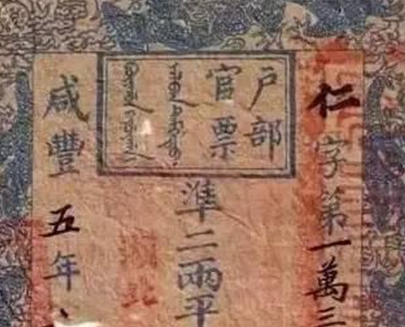 仁字第一萬三
户部
官票
準二兩平
湖北
咸豐五年